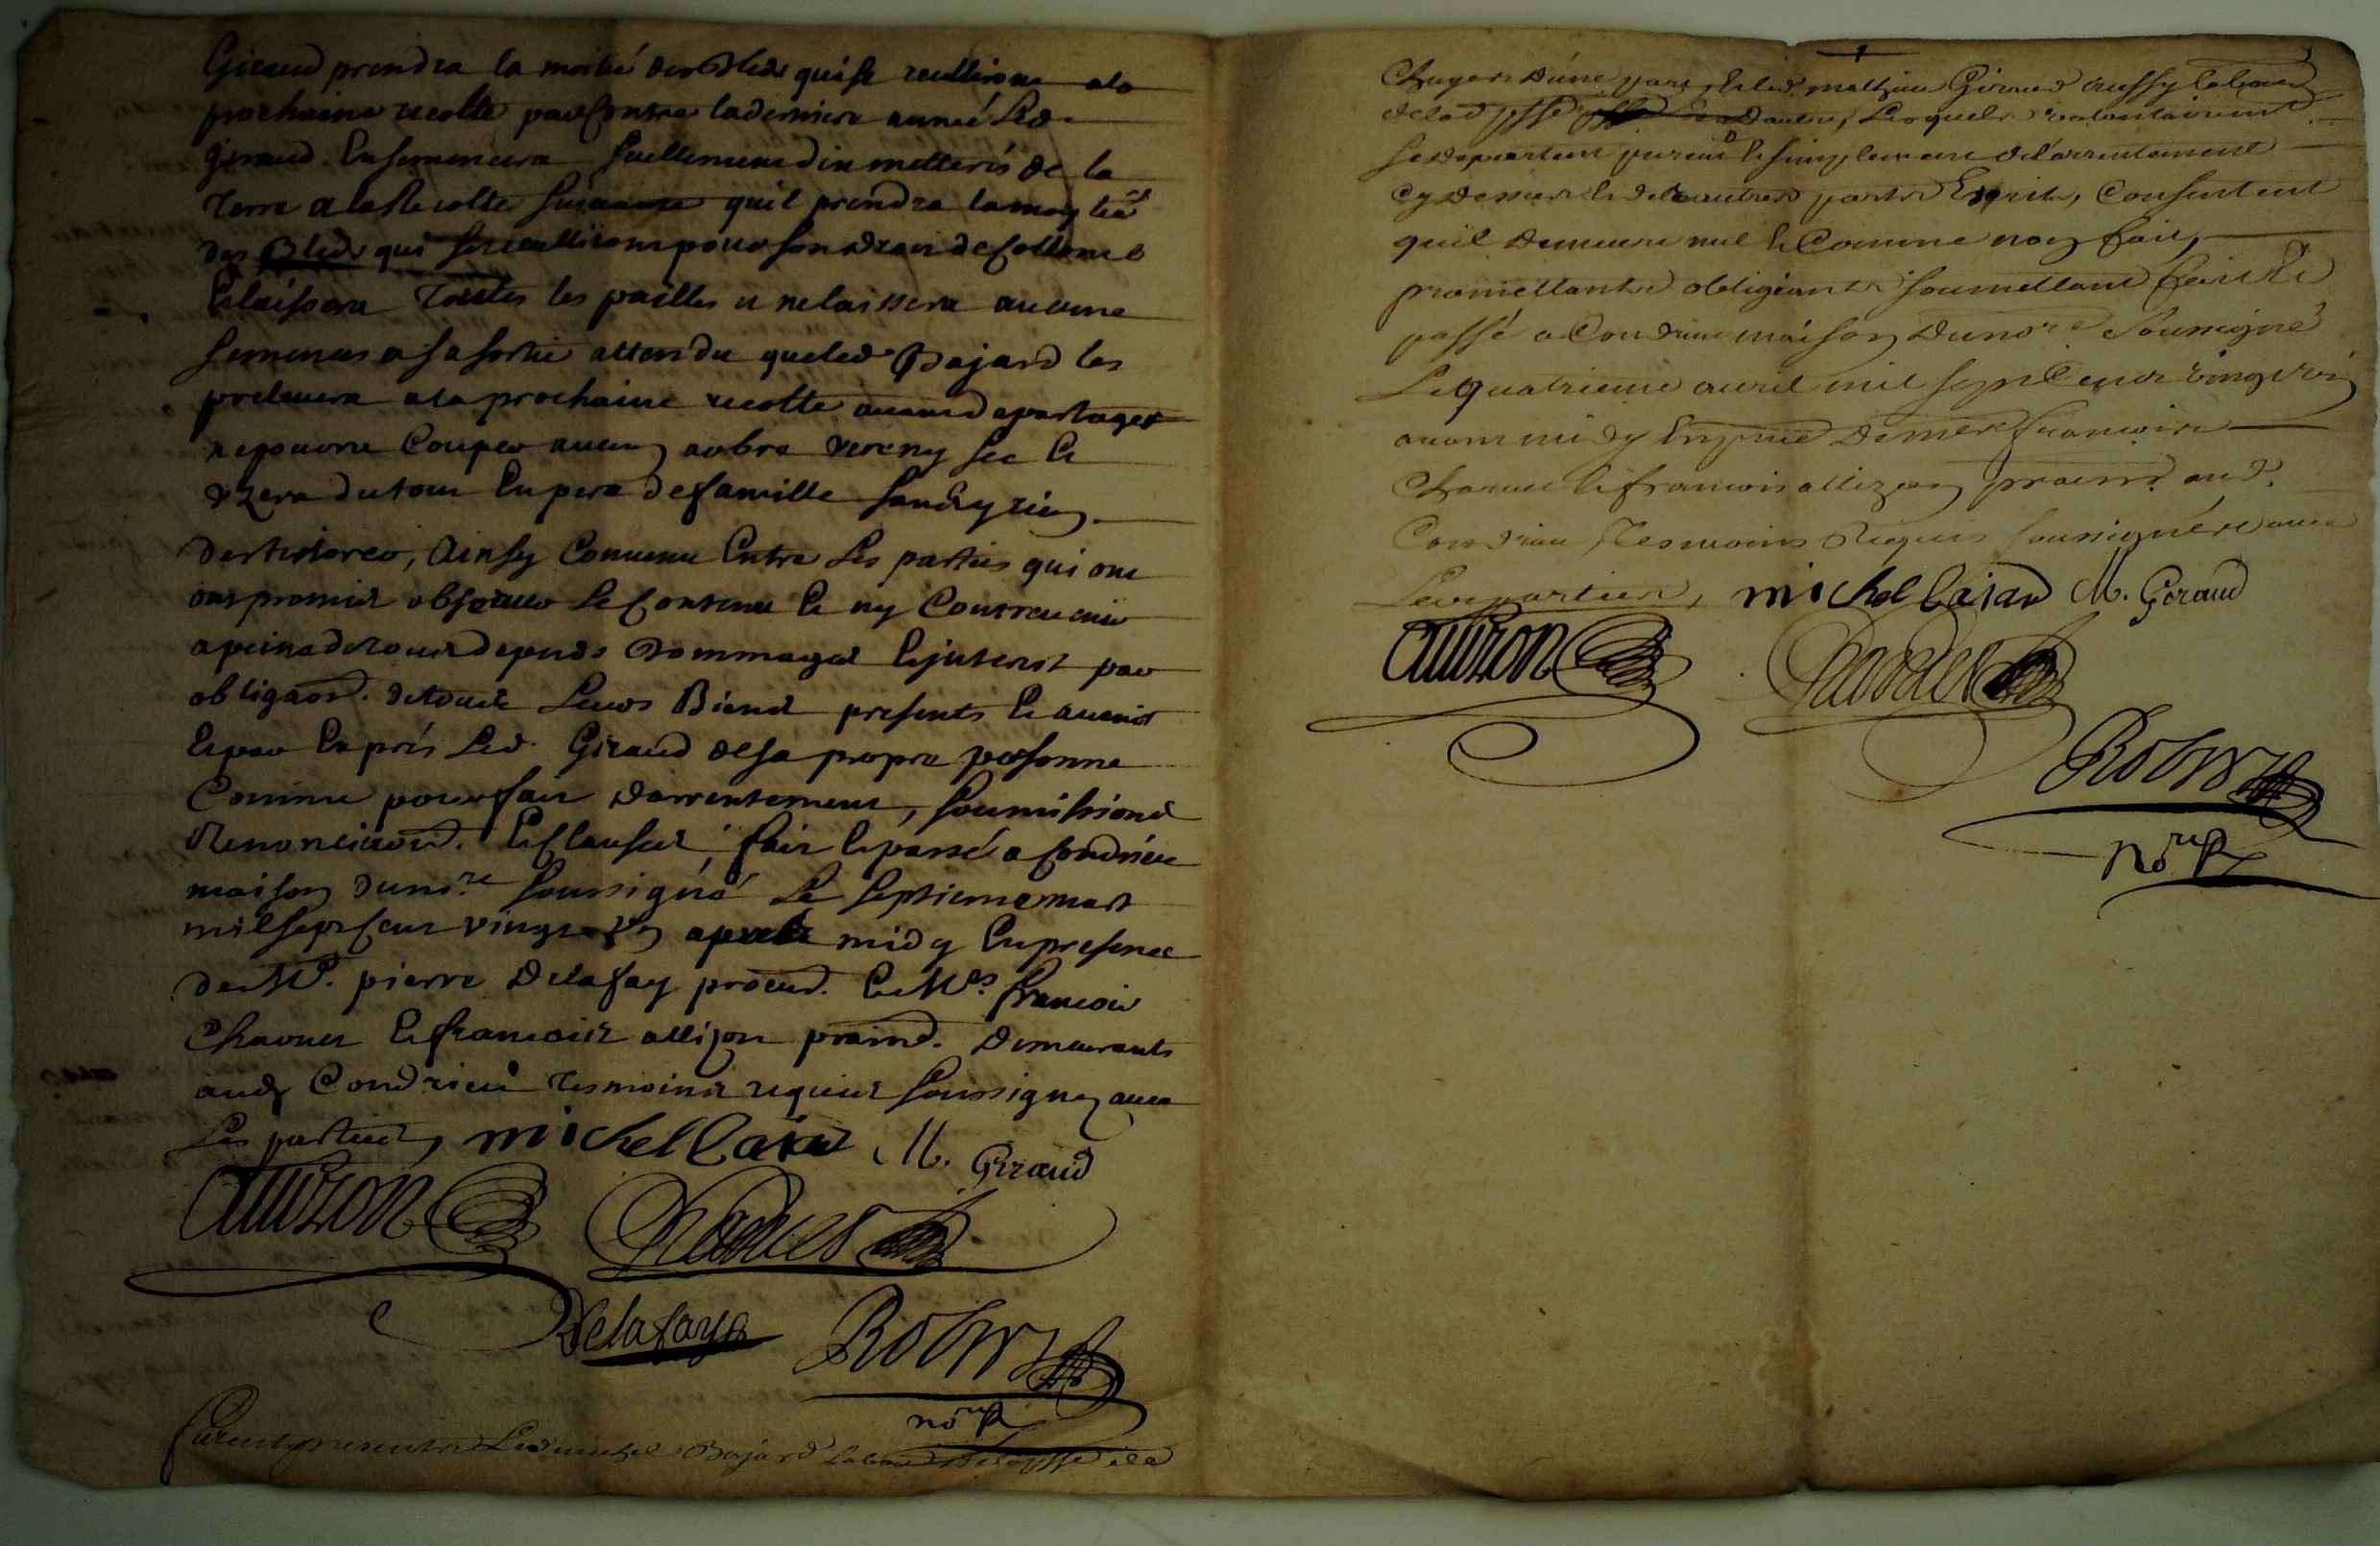 Giraud prendra la moitié des Bleds qui se reculliront a la
prochaine recolte par contre la derniere année led.
Giraud Ensemencera seullement dix metterés de la
Terre a la Recolte suivante quil prendra la moytié
des Bleds qui se reculliront pour son droit de collone
Et laissera Toutes les pailles et ne laissera aucune
semences a sa sortie attendu que led Bajard les
prelevera a la prochaine recolte avant de partager
ne pourra Couper aucun arbre vere ny sec Et
Uzera du tout En pere de famille sans y rien
desteriorer, Ainsy Convenu Entre Les parties qui ont
ont promis observer Le Contenu Et ny Contrevenir
a peine de tous depends Dommages Et interest par
obligaon. de tous Leurs Biens presents Et avenir
Et par Exprés Led. Giraud de sa propre personne
Comme pour fait darrentement, soumissions
Renonciaons. Et clauses, fait Et passé a Condrieu
maison du no.re soussigné Le septieme mars
mil sept Cent vingt apres midy En presence
de M.e pierre Delafay procur. Et M.es francois
Et francois allizon pratic. Demeurants
aud Condrieu Tesmoins requis soussignez avec
Les parties, michel Bajard M. Giraud
Delafaye
no.re R
furent presents Led michel Bajard
d'une part, Et led. mathieu Giraud aussy
d'autre, Lesquels volontairement
se departent purement Et simplement de l'arrentement
cy dessus Et des autres parts Escrit, Consentent
quil Demeure nul Et Comme non fait,
promettants obligeants soumettant fait Et
passé a Condrieu maison du no.re soussigné
Le quatrieme avril mil sept Cent vingt
avant midy En pnce de mes.r francois
Et francois allizon pratic. aud.
Condrieu Tesmoins Requis soussignés avec
Les parties, michel Bajard M. Giraud
no.re R